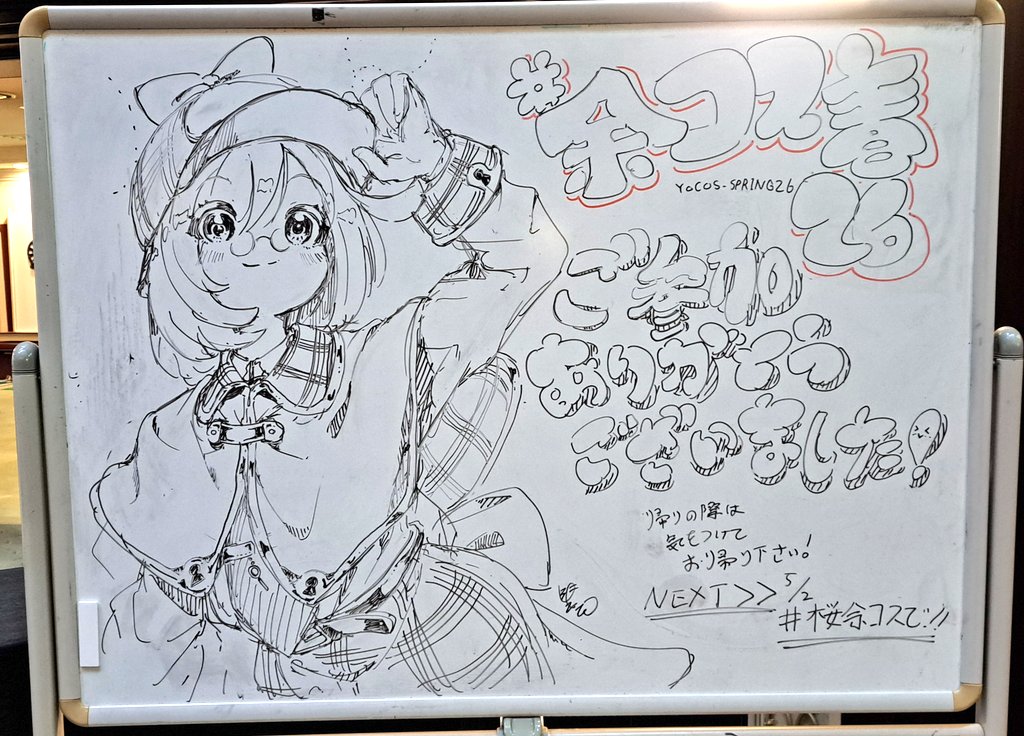 #余コス春26
YOCOS-SPRING26
ご参加
ありがとう
ございました!
帰りの際は
気をつけて
お帰り下さい!
NEXT>> 5/2
#桜余コスで!!